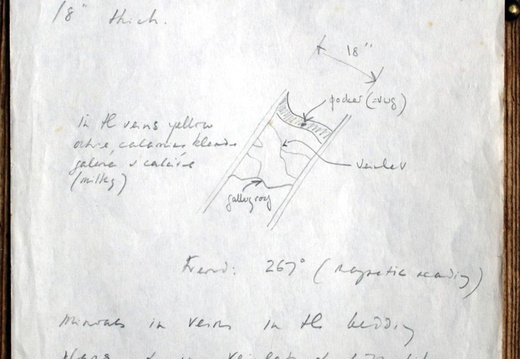 18" thick.
18"
pocket (=vug)
In the veins yellow
ochre, calamine blende
galena & calcite
(milky)
veinlet
galley roof
Trend: 267° (magnetic reading)
Minerals in veins in the bedding